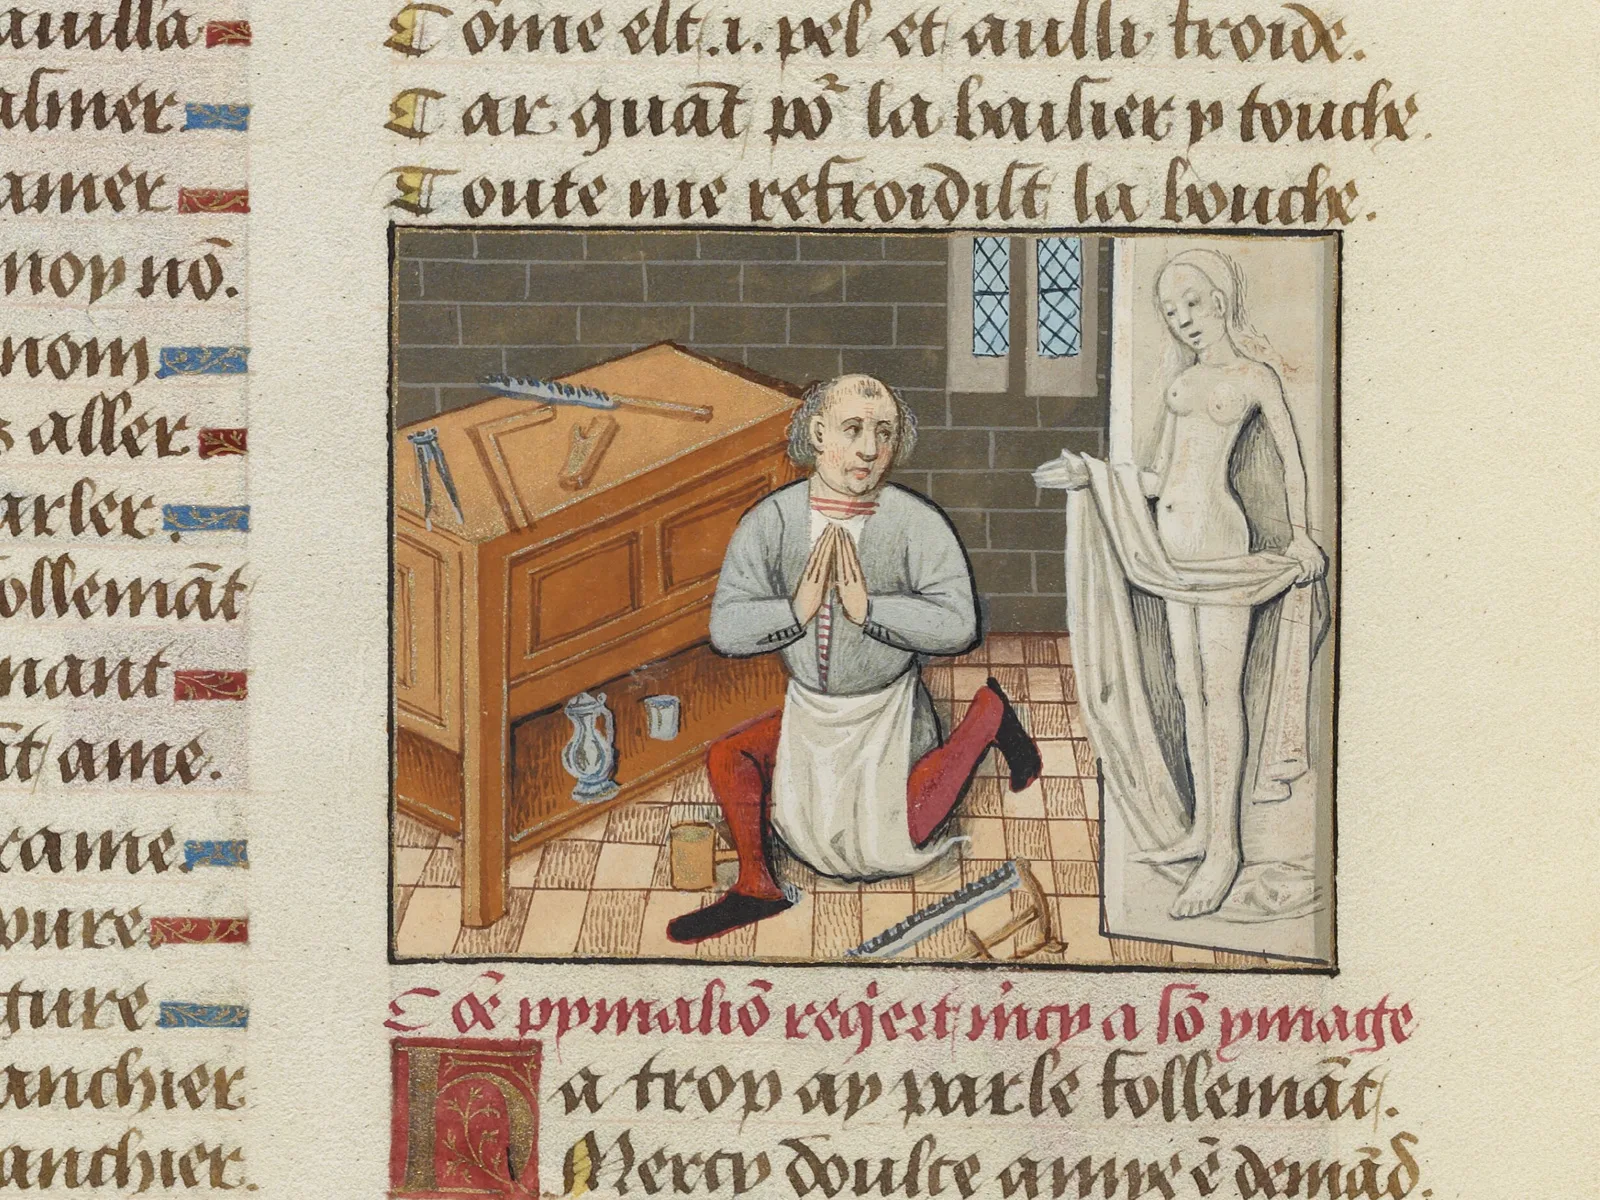 auilla
almer
amer
moy nō.
nom
s aller
arler.
follemāt
nant
āt ame.
rame.
pure
ture
anchier
anchier.
Cōme est .i. pel et aussi froide.
Car quāt po᷑ la baisier y touche.
Toute me refroidist la bouche.
Cōe pymaliō reqͥert mͨcy a sō ymage
Ha trop ay parle follemāt.
Mercy doulce amye ē demād.